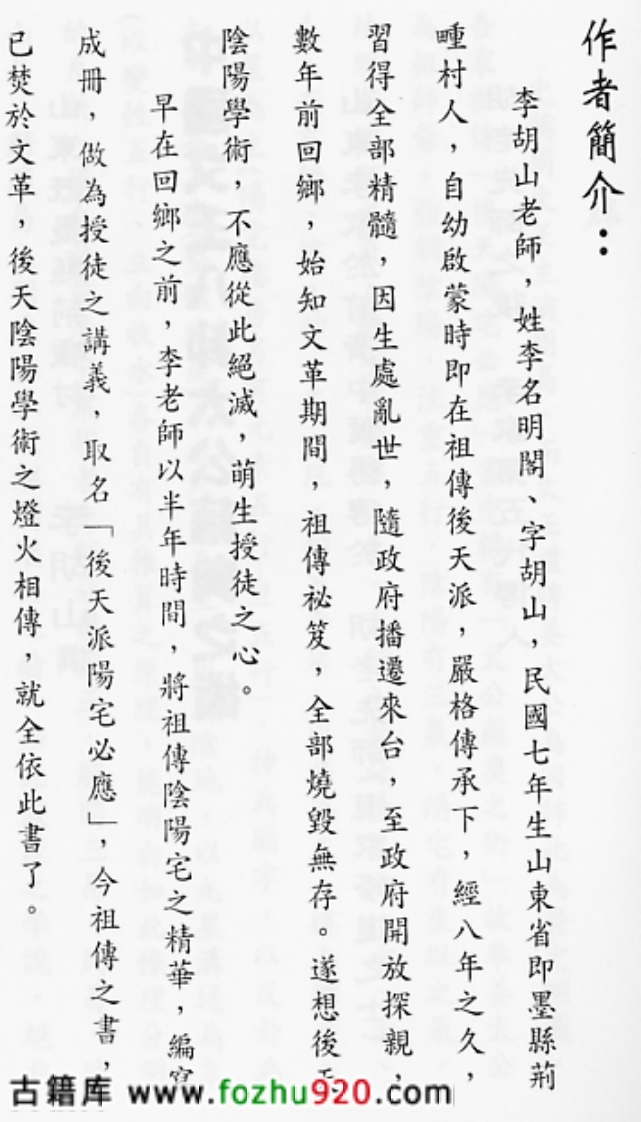 作者簡介：
李胡山老師，姓李名明閣、字胡山，民國七年生山東省即墨縣荊
畽村人，自幼啟蒙時即在祖傳後天派，嚴格傳承下，經八年之久，
習得全部精髓，因生處亂世，隨政府播遷來台，至政府開放探親，
數年前回鄉，始知文革期間，祖傳祕笈，全部燒毀無存。遂想後天
陰陽學術，不應從此絕滅，萌生授徒之心。
早在回鄉之前，李老師以半年時間，將祖傳陰陽宅之精華，編寫
成冊，做為授徒之講義，取名「後天派陽宅必應」，今祖傳之書，
已焚於文革，後天陰陽學術之燈火相傳，就全依此書了。
古籍库 www.fozhu920.com